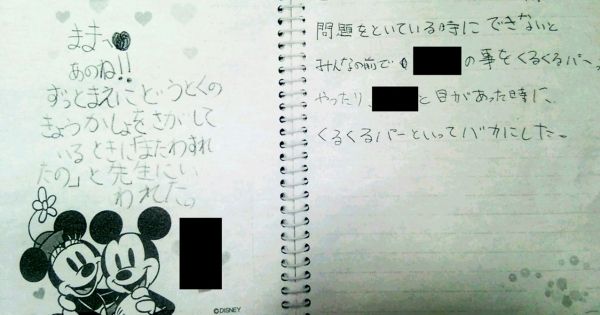 ままへ
あのね!!
ずっとまえにどうとくの
きょうかしょをさがして
いるときに「またわすれ
たの」と先生にい
われた。
©DISNEY
問題をといている時にできないと
みんなの前で の事をくるくるパー。
やったり、 と目があった時に、
くるくるパーといってバカにした。